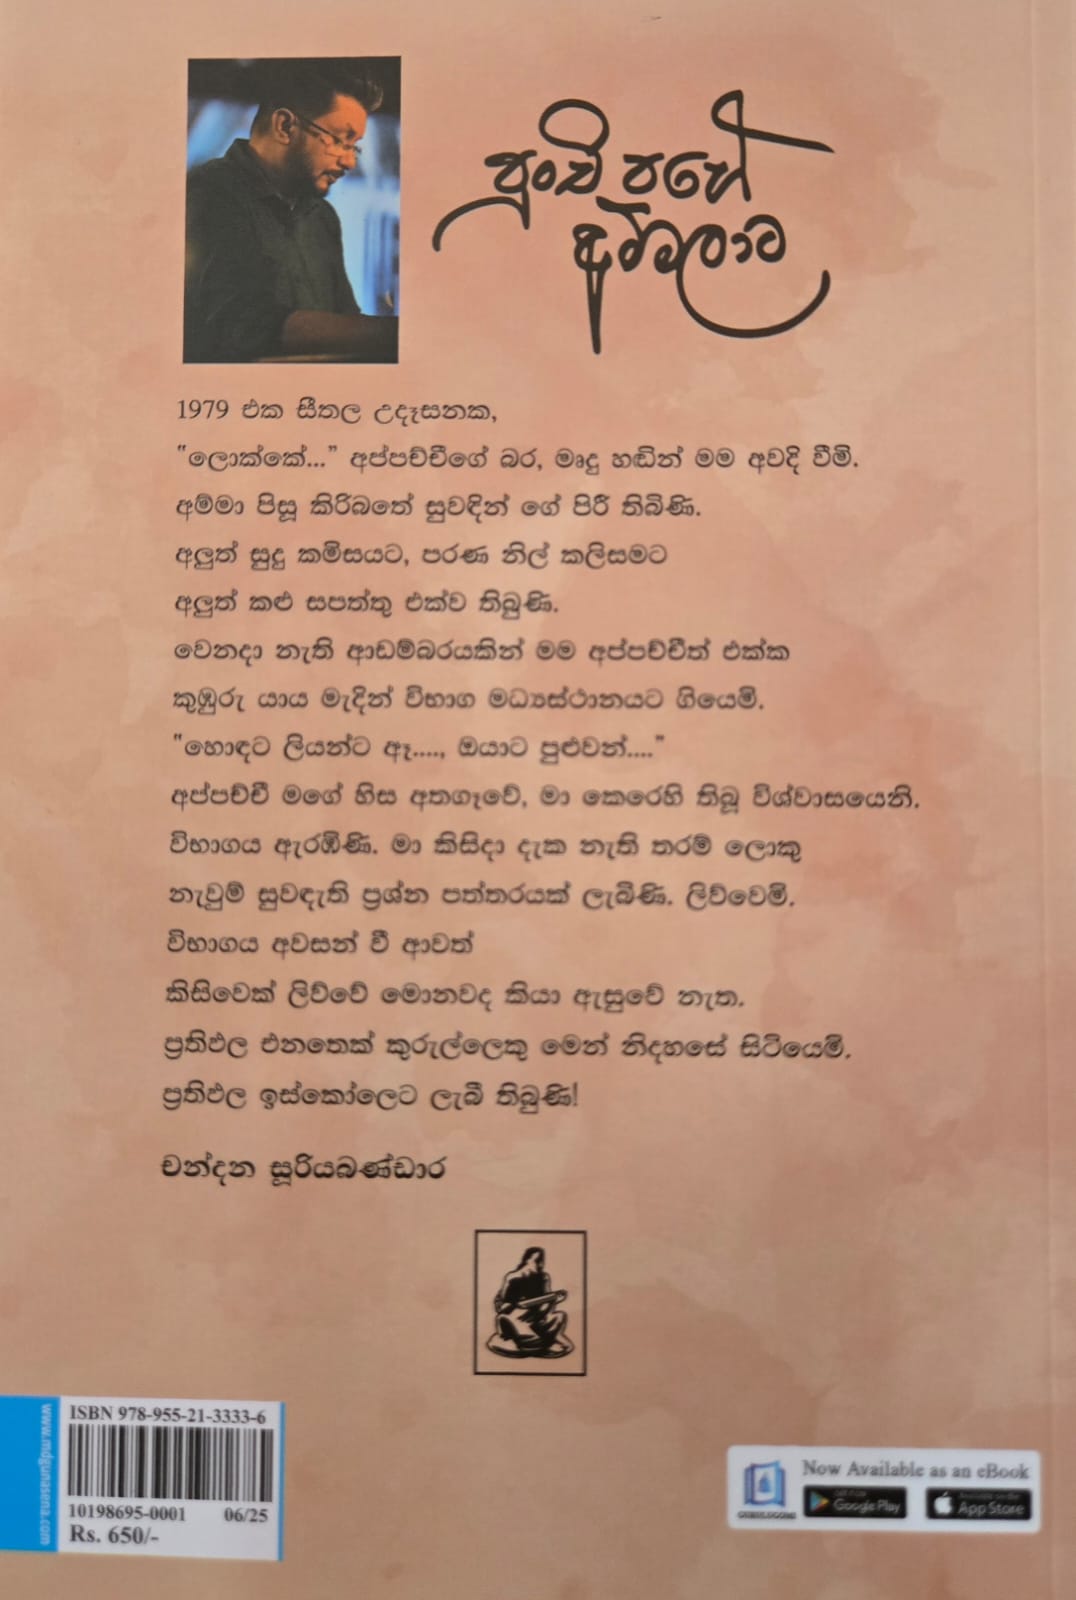 පුංචි පහේ
අම්මලාට
1979 එක සීතල උදෑසනක,
"ලොක්කේ..." අප්පච්චීගේ බර, මෘදු හඬින් මම අවදි වීමි.
අම්මා පිසූ කිරිබතේ සුවඳින් ගේ පිරී තිබිණි.
අලුත් සුදු කමිසයට, පරණ නිල් කලිසමට
අලුත් කළු සපත්තු එක්ව තිබුණි.
වෙනදා නැති ආඩම්බරයකින් මම අප්පච්චීත් එක්ක
කුඹුරු යාය මැදින් විභාග මධ්‍යස්ථානයට ගියෙමි.
"හොඳට ලියන්ට ඈ...., ඔයාට පුළුවන්...."
අප්පච්චී මගේ හිස අතගෑවේ, මා කෙරෙහි තිබූ විශ්වාසයෙනි.
විභාගය ඇරඹිණි. මා කිසිදා දැක නැති තරම් ලොකු
නැවුම් සුවඳැති ප්‍රශ්න පත්තරයක් ලැබිණි. ලිව්වෙමි.
විභාගය අවසන් වී ආවත්
කිසිවෙක් ලිව්වේ මොනවද කියා ඇසුවේ නැත.
ප්‍රතිඵල එනතෙක් කුරුල්ලෙකු මෙන් නිදහසේ සිටියෙමි.
ප්‍රතිඵල ඉස්කෝලෙට ලැබී තිබුණි!
චන්දන සූරියබණ්ඩාර
www.mdgunasena.com
ISBN 978-955-21-3333-6
10198695-0001 06/25
Rs. 650/-
Now Available as an eBook
GURULUGOMI
Google Play
App Store